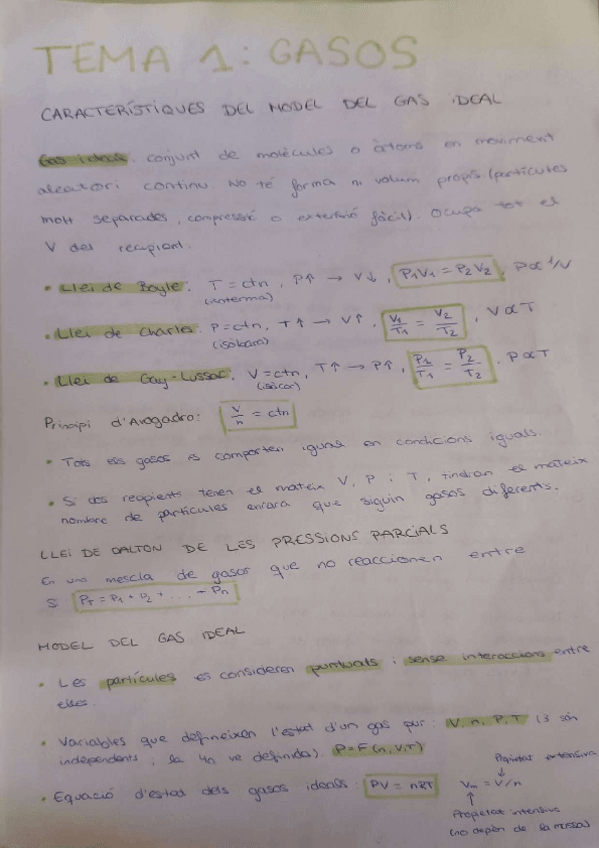 TEMA 1: GASOS
CARACTERÍSTIQUES DEL MODEL DEL GAS IDEAL
Gas ideal: conjunt de molècules o àtoms en moviment
aleatori continu. No té forma ni volum propis (partícules
molt separades, compressió o extensió fàcil). Ocupa tot el
V del recipient.
• Llei de Boyle. T = ctn, P↑ → V↓, P₁V₁ = P₂V₂, P ∝ 1/V
(isoterma)
• Llei de Charles. P = ctn, T↑ → V↑, V₁/T₁ = V₂/T₂, V ∝ T
(isòbara)
• Llei de Gay-Lussac. V = ctn, T↑ → P↑, P₁/T₁ = P₂/T₂. P ∝ T
(isòcor)
Principi d'Avogadro: V/n = ctn
• Tots els gasos es comporten igual en condicions iguals.
• Si dos recipients tenen el mateix V, P i T, tindran el mateix
nombre de partícules encara que siguin gasos diferents.
LLEI DE DALTON DE LES PRESSIONS PARCIALS
En una mescla de gasos que no reaccionen entre
si PT = P₁ + P₂ + ... - Pn
MODEL DEL GAS IDEAL
• Les partícules es consideren puntuals i sense interaccions entre
elles.
• Variables que defineixen l'estat d'un gas pur: V, n, P, T (3 són
independents, la 4a ve definida). P = F(n,V,T)
Propietat extensiva
• Equació d'estat dels gasos ideals: PV = nRT Vm = V/n
Propietat intensiva
(no depèn de la massa)